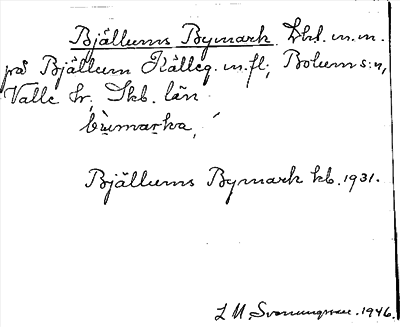 Bjällums Bymark. Lht. m.m.
på Bjällum Källeg. m.fl., Bolums sn,
Valle hr, Skb. län
bỳmarka,
Bjällums Bymark kb. 1931.
L M. Svanungsson. 1946.